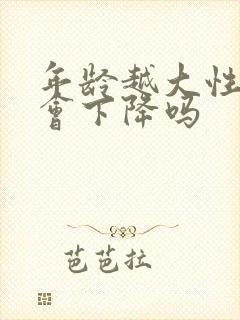 年龄越大性
会下降吗
芭芭拉